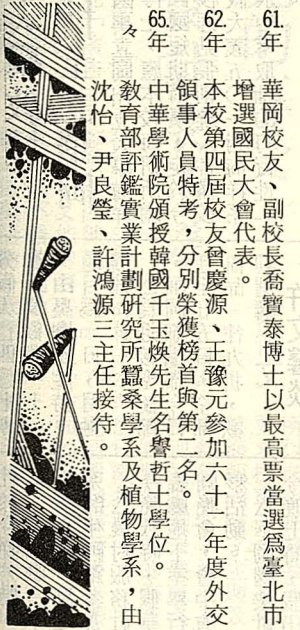 61.年　華岡校友、副校長喬寶泰博士以最高票當選爲臺北市
增選國民大會代表。
62.年　本校第四屆校友曾慶源、王豫元參加六十二年度外交
領事人員特考，分別榮獲榜首與第二名。
65.年　中華學術院頒授韓國千玉煥先生名譽哲士學位。
々　教育部評鑑實業計劃研究所蠶桑學系及植物學系，由
沈怡、尹良瑩、許鴻源三主任接待。